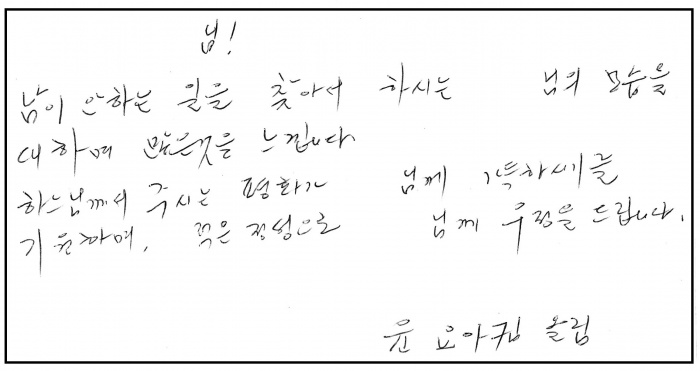 님!
남이 안하는 일을 찾아서 하시는 님의 모습을
대하며 많은것을 느낍니다
하느님께서 주시는 평화가 님께 가득하시기를
기원하며, 적은 정성으로 님께 우정을 드립니다.
윤 요아킴 올림